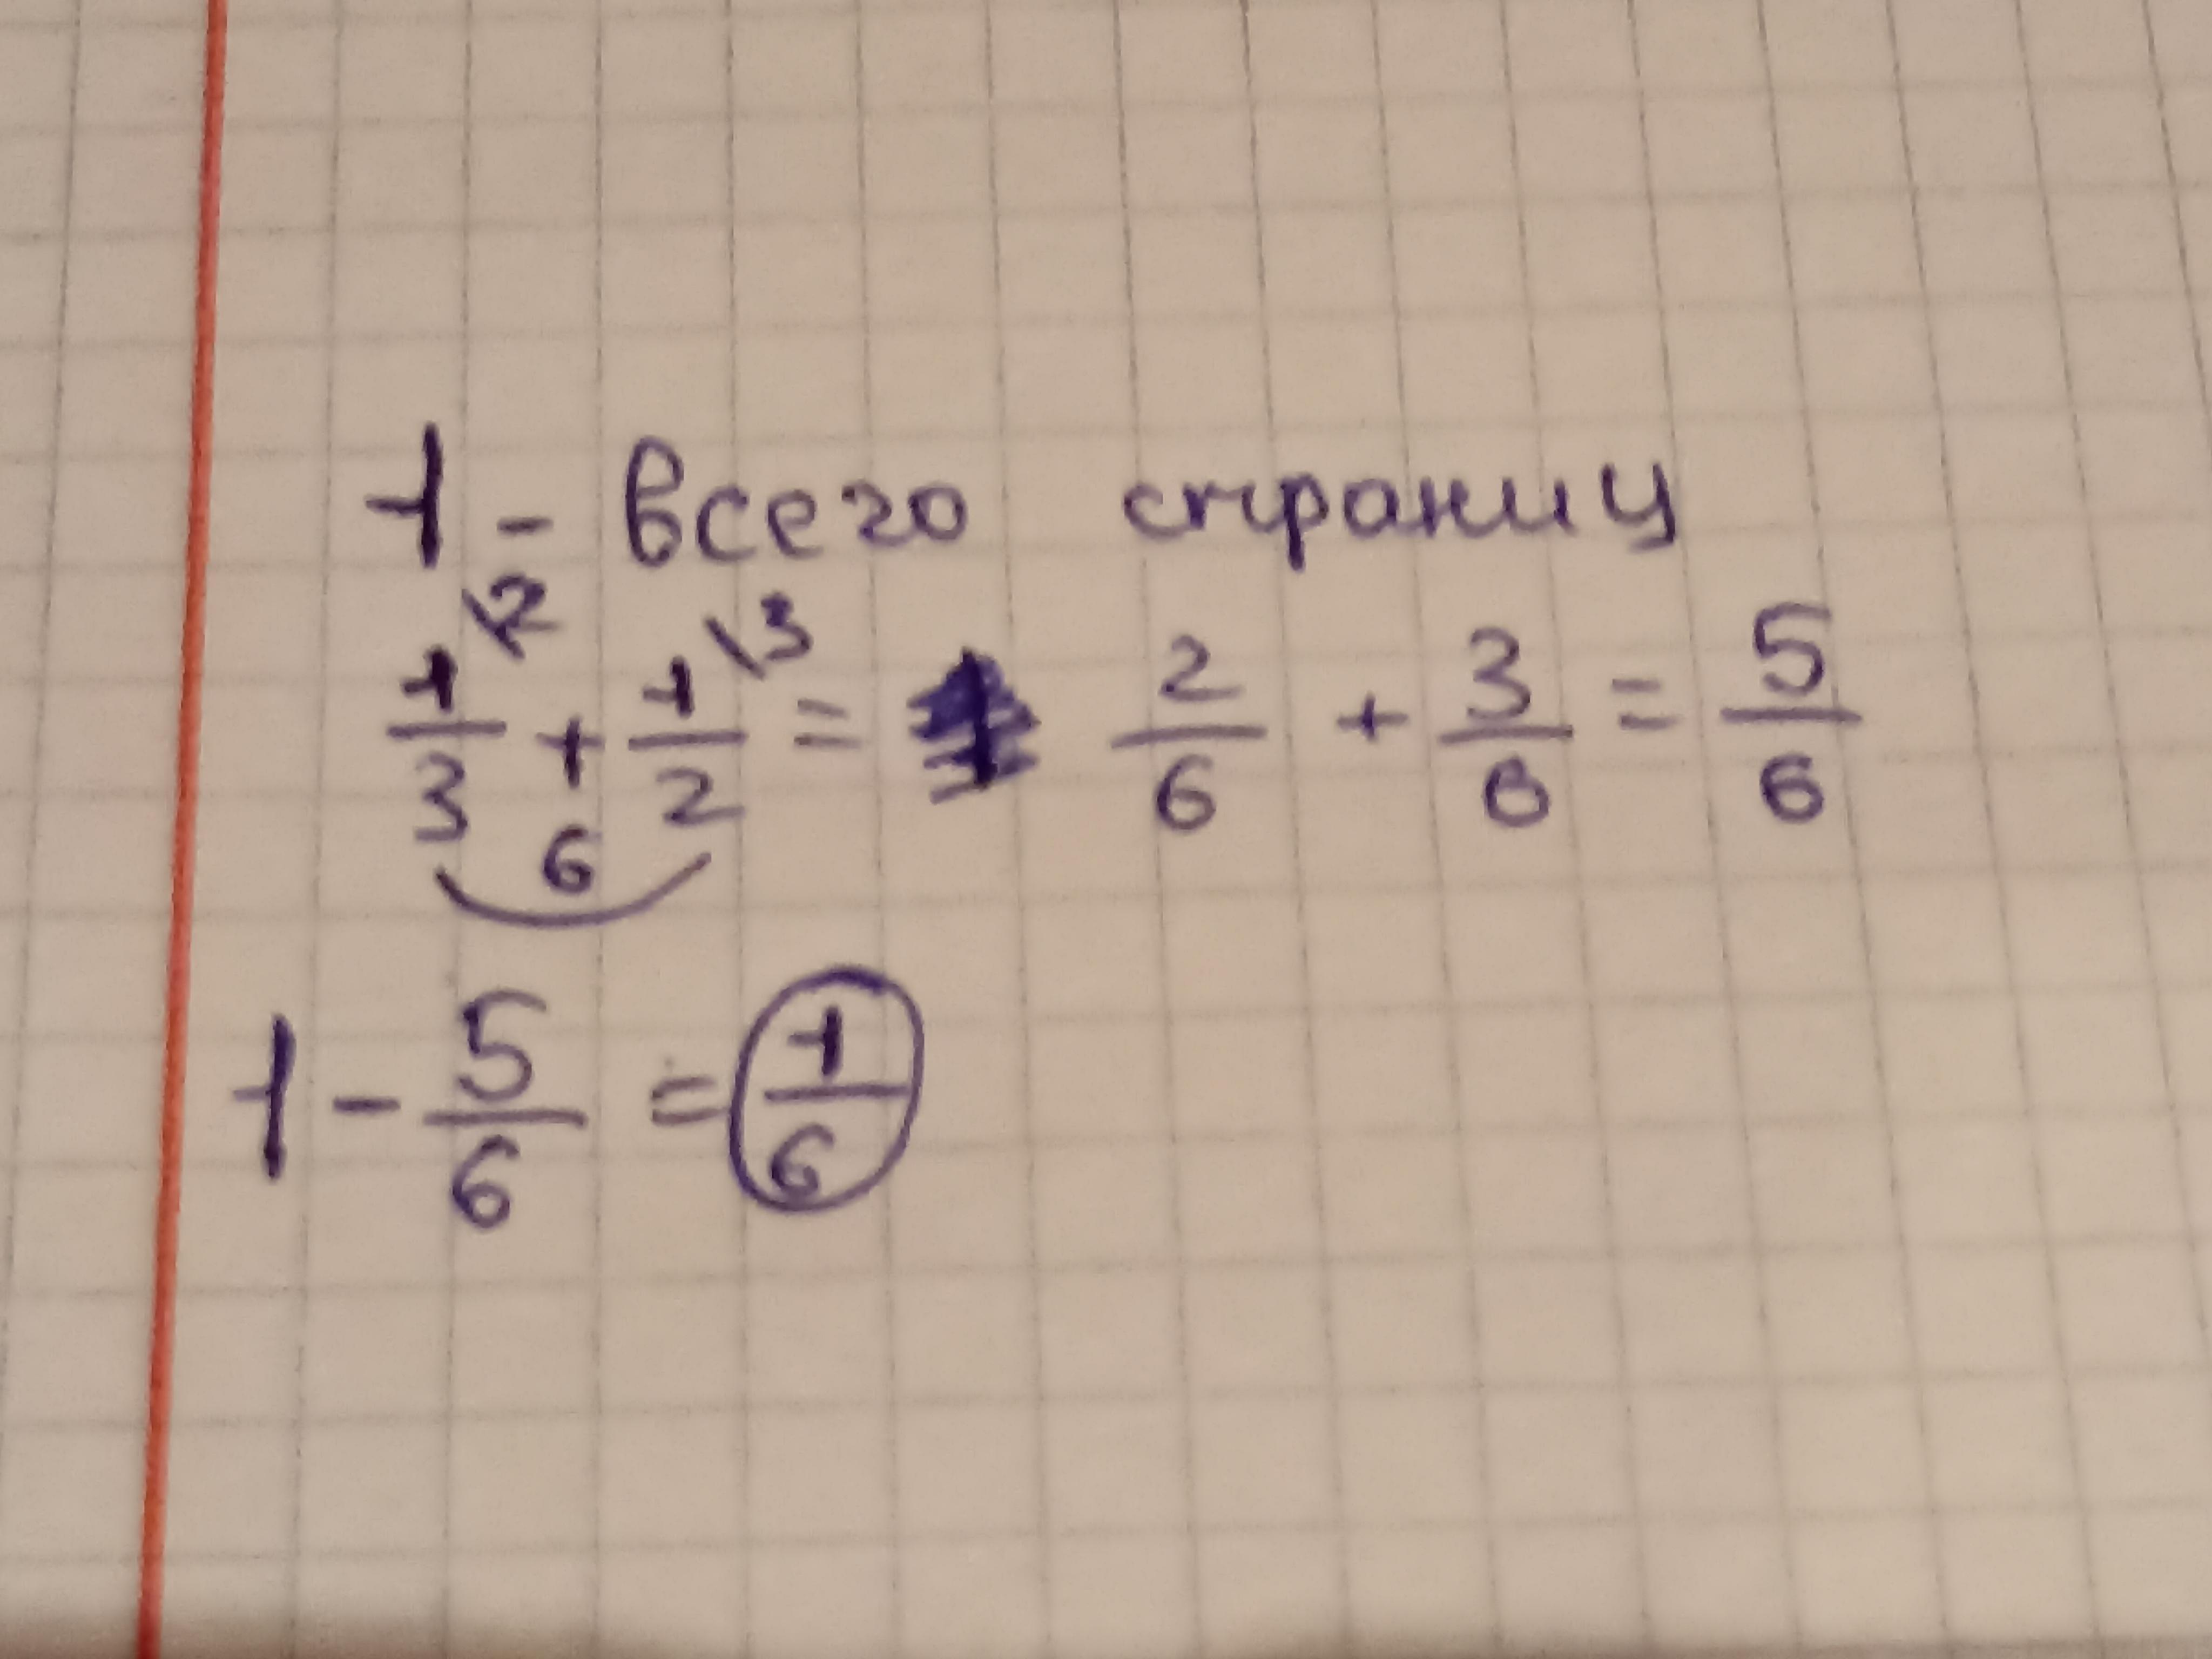 1 - всего страниц
1/3 \2 + 1/2 \3 = 2/6 + 3/6 = 5/6
6
1 - 5/6 = 1/6